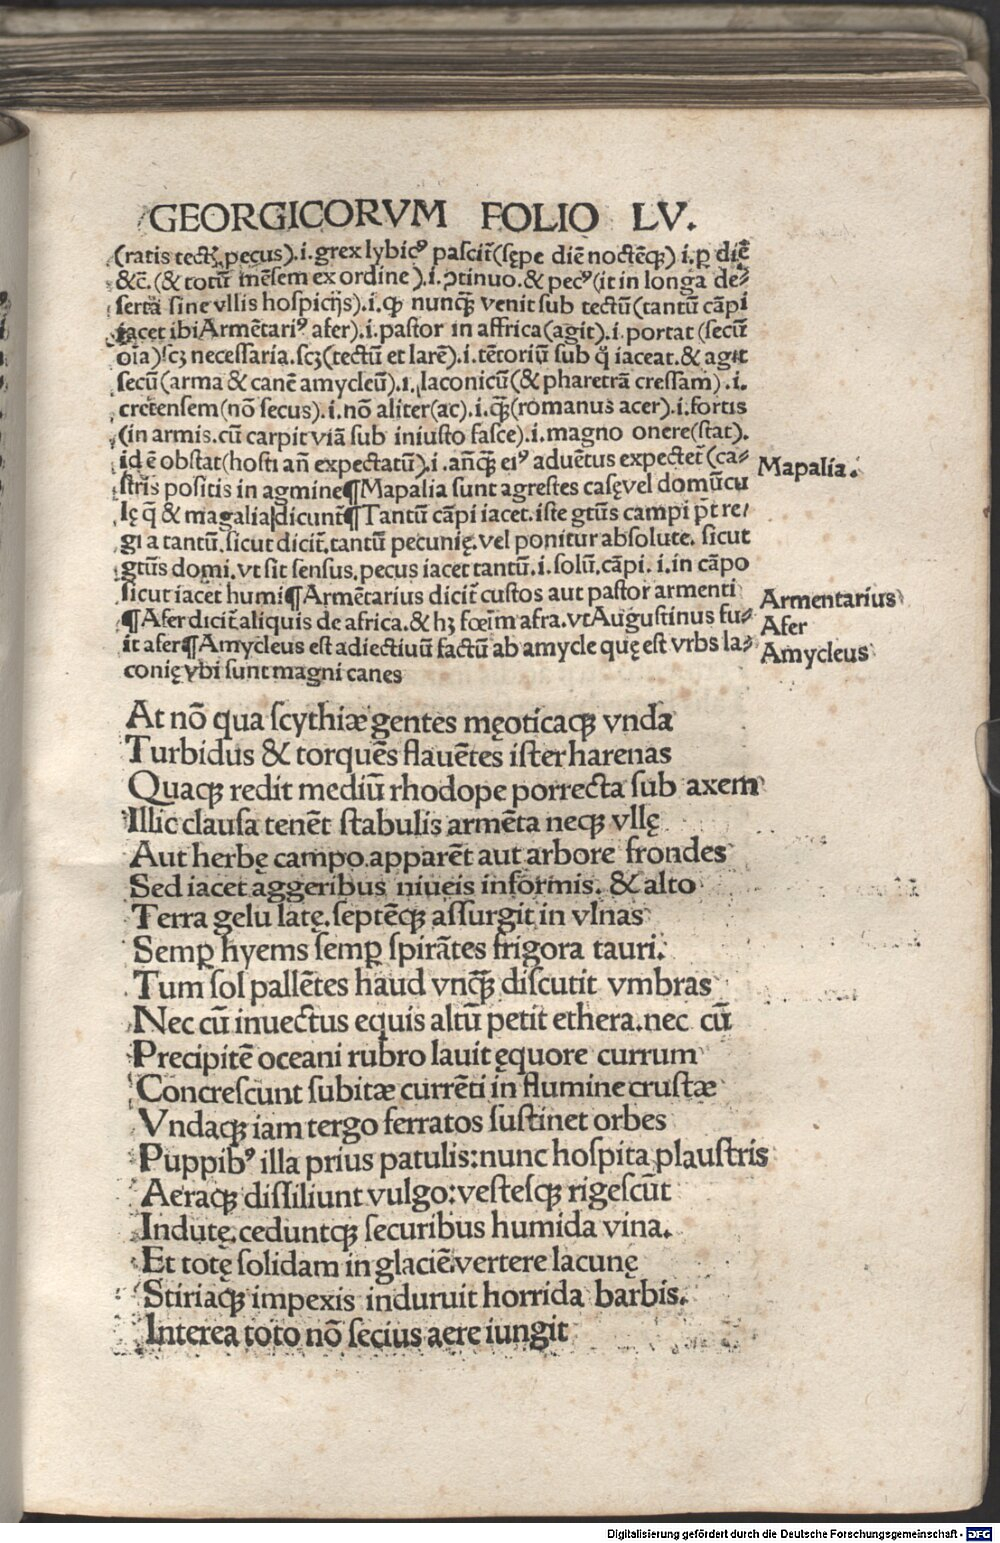 GEORGICORVM FOLIO LV.
(ratis tectꝭ pęcus).i.grex lybicꝰ pascit̃(sępe diē noctēqꝫ) i.ꝑ diē
&c̃.(& totū mēsem ex ordine).i.ꝯtinuo.& pecꝰ(it in longa de⸗
serta sine vllis hospicijs).i.ꝙ nunqꝫ̃ venit sub tectū(tantū cāpi
iacet ibi Armētariꝰ afer).i.pastor in affrica(agit).i.portat (secū
oīa) scꝫ necessaria.scꝫ(tectū et larē).i.tētoriū sub q̃ iaceat.& agit
secū(arma & canē amycleū).i.laconicū(& pharetrā cressam).i.
cretensem(nō secus).i.nō aliter(ac).i.qꝫ̃(romanus acer).i.fortis
(in armis.cū carpit viā sub iniusto fasce).i.magno onere(stat).
id ē obstat(hosti añ expectatū).i.añqꝫ̃ eiꝰ aduētus expectet̃ (ca⸗
stris positis in agmine¶Mapalia sunt agrestes casę vel domūcu
lę q̃ & magalia dicunt̃¶Tantū cāpi iacet.iste gtūs campi pt̃ re⸗
gi a tantū.sicut dicit̃.tantū pecunię.vel ponitur absolute. sicut
gtūs domi.vt sit sensus.pecus iacet tantū.i.solū.cāpi.i.in cāpo
sicut iacet humi¶Armētarius dicit̃ custos aut pastor armenti
¶Afer dicit̃.aliquis de africa.& hꝫ fœīm afra.vt Augustinus fu⸗
it afer¶Amycleus est adiectiuū factū ab amycle quę est vrbs la⸗
conię vbi sunt magni canes
Mapalia.
Armentarius
Afer
Amycleus
At nō qua scythiæ gentes męoticaqꝫ vnda
Turbidus & torquēs flauētes ister harenas
Quaqꝫ redit mediū rhodope porrecta sub axem
Illic clausa tenēt stabulis armēta neqꝫ vllę
Aut herbę campo.apparēt aut arbore frondes
Sed iacet aggeribus niueis informis. & alto
Terra gelu latę.septēqꝫ assurgit in vlnas
Semꝑ hyems semꝑ spirātes frigora tauri.
Tum sol pallētes haud vnqꝫ̃ discutit vmbras
Nec cū inuectus equis altū petit ethera.nec cū
Precipitē oceani rubro lauit ęquore currum
Concrescunt subitæ currēti in flumine crustæ
Vndaqꝫ iam tergo ferratos sustinet orbes
Puppibꝰ illa prius patulis:nunc hospita plaustris
Aeraqꝫ dissiliunt vulgo:vestesqꝫ rigescūt
Indutę.ceduntqꝫ securibus humida vina.
Et totę solidam in glaciē vertere lacunę
Stiriaqꝫ impexis induruit horrida barbis.
Interea toto nō secius aere iungit
Digitalisierung gefördert durch die Deutsche Forschungsgemeinschaft - DFG